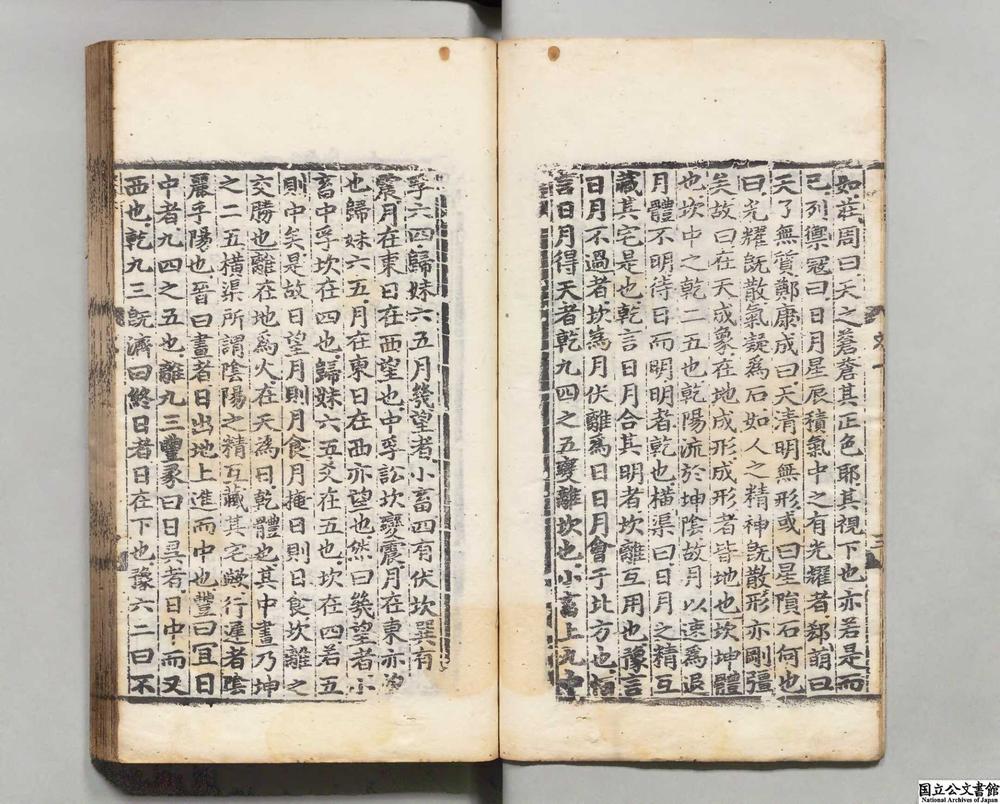 如莊周曰天之蒼蒼其正色耶其視下也亦若是而
已列禦冠曰日月星辰積氣中之有光耀者郄萌曰
天了無質鄭康成曰天清明無形或曰星隕石何也
曰光耀旣散氣凝爲石如人之精神旣散形亦剛彊
矣故曰在天成象在地成形成形者皆地也坎坤體
也坎中之乾二五也乾陽流於坤陰故月以速爲退
月體不明待日而明明者乾也橫渠曰日月之精互
藏其宅是也乾言日月合其明者坎離互用也豫言
日月不過者坎爲月伏離爲日日月會于北方也恒
言日月得天者乾九四之五變離坎也小畜上九中
孚六四歸妹六五月幾望者小畜四有伏坎巽有
震月在東日在西望也中孚訟坎變震月在東亦望
也歸妹六五月在東日在西亦望也然曰幾望者小
畜中孚坎在四也歸妹六五爻在五也坎在四若五
則中矣是故日望月則月食月掩日則日食坎離之
交勝也離在地爲火在天爲日乾體也其中畫乃坤
之二五橫渠所謂陰陽之精互藏其宅歟行遲者陰
麗乎陽也晉曰晝者日出地上進而中也豐曰宜日
中者九四之五也離九三豐彖曰日昃者日中而又
西也乾九三旣濟曰終日者日在下也豫六二曰不
三
国立公文書館
National Archives of Japan